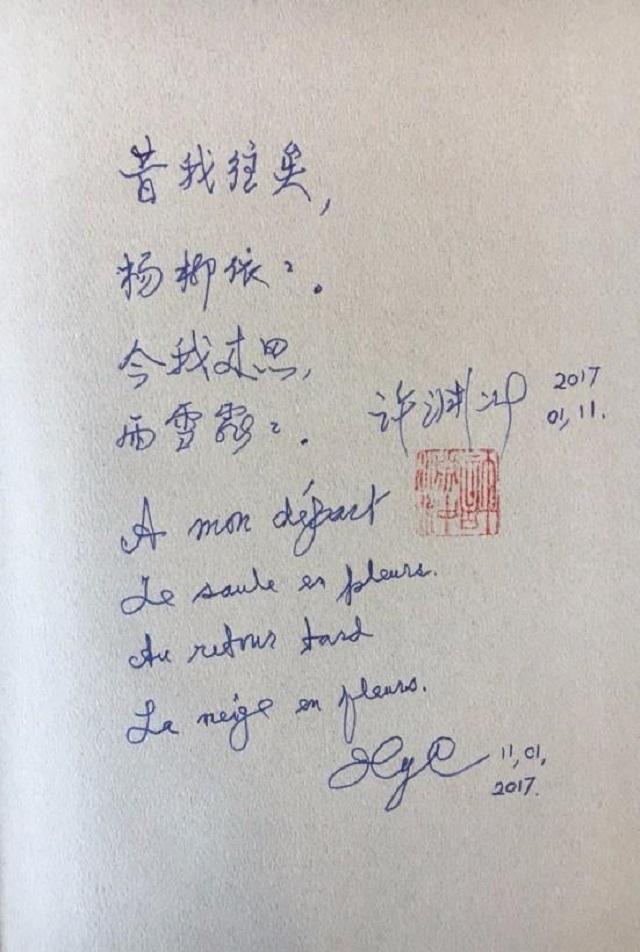 昔我往矣，
杨柳依〻。
今我来思，
雨雪霏〻。
许渊冲 2017
01,11.
A mon départ
Le saule en pleurs.
Au retour tard
La neige en fleurs.
11,01,
2017.